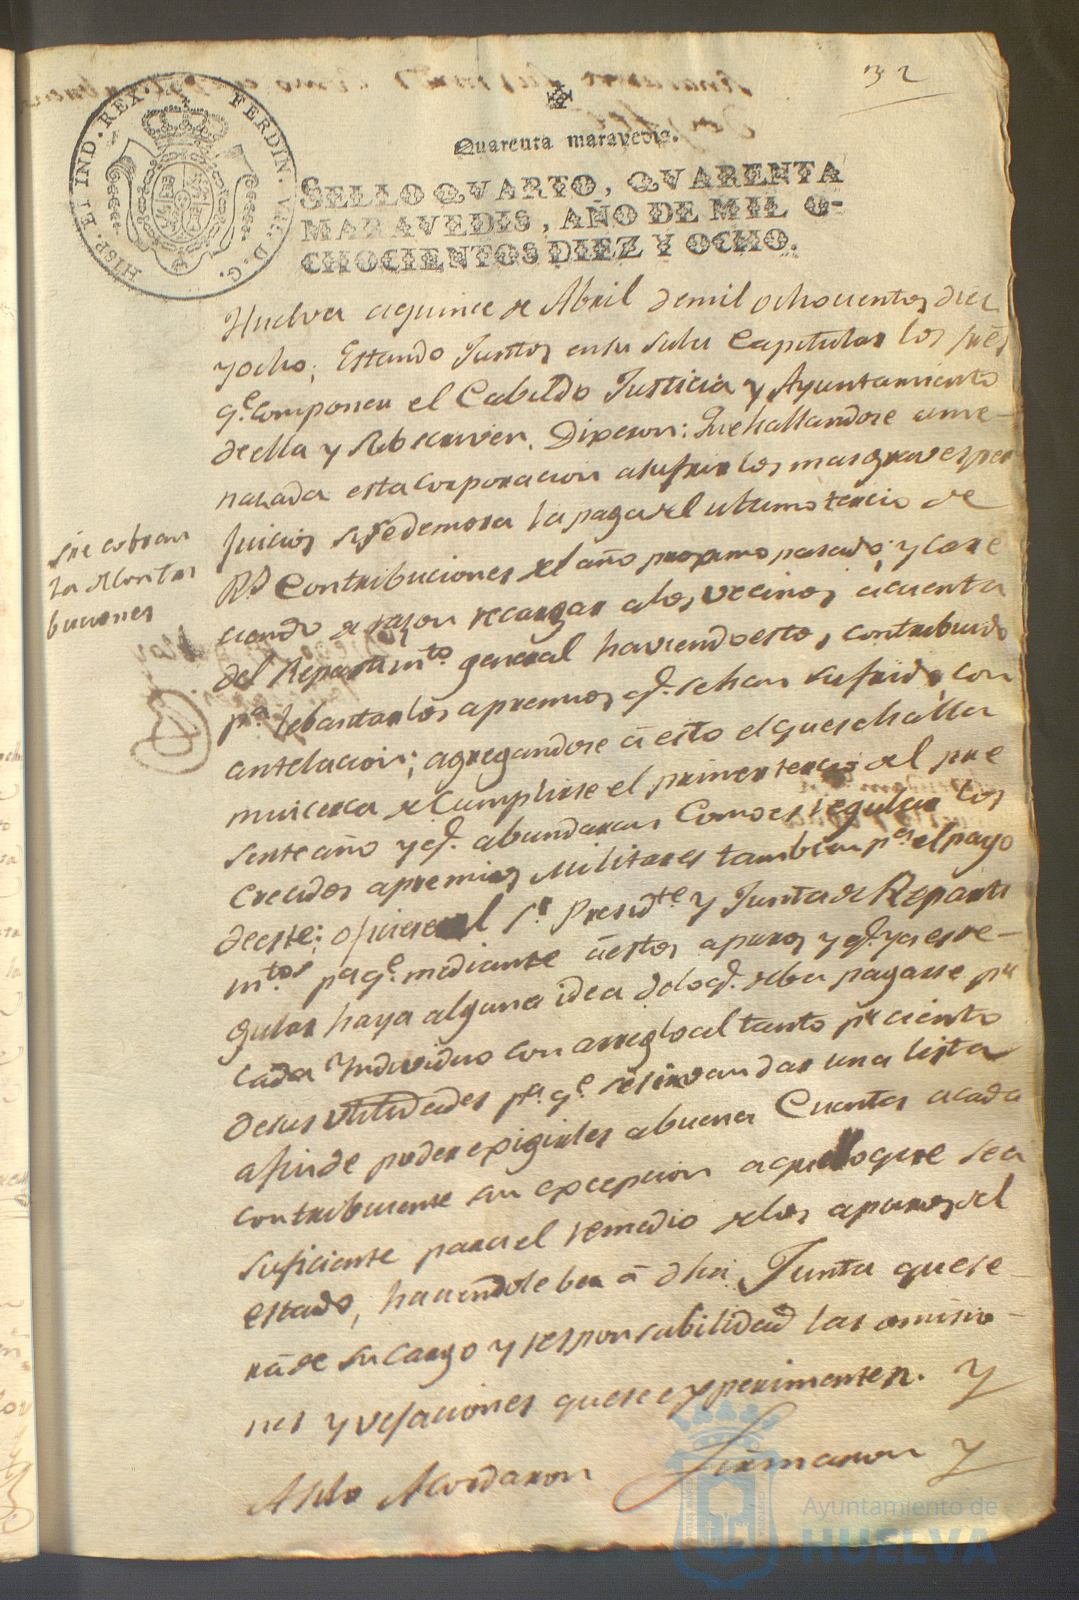 32
Quarenta maravedis.
SELLO QVARTO, QVARENTA
MARAVEDIS, AÑO DE MIL O-
CHOCIENTOS DIEZ Y OCHO.
HISP. ET IND. REX. FERDIN. VII. D. G.
Huelva aquince de Abril demil ochocientos diez
yocho; Estando Juntos ensu sala Capitular los sres
qe componen el Cabildo Justicia y Ayuntamiento
deella y Subscriven, Dixeron: Quehallandose ame-
nazada esta corporacion asufrir los mas graves per
juicios si sedemora la paga del ultimo tercio de
Rs Contribuciones del año proximo pasado; y care
ciendo de razon recargar alos vecinos acuenta
del Repartimto general haviendo estos contribuido
pa lebantar los apremios qe. sehan sufrido con
antelacion; agregandose á esto el que sehalla
mui cerca de cumplirse el primer tercio del pre
sente año y qe. abundaran Como es regular los
crecidos apremios Militares tambien pa el pago
deeste; oficiese al Sr. Presidte y Junta de Reparti
mtos pa qe. mediante á estos apuros y qe. ya es re-
gular haya alguna idea delo qe. deba pagarse pr
cada Yndividuo con arreglo al tanto pr ciento
desus utilidades pa. qe. se sirvan dar una lista
afin de poder exigirles abuena Cuenta acada
contribuiente sin excepcion aquello que sea
suficiente para el remedio delos apuros del
estado, haciendole ber á dha Junta que se
rá de su cargo y responsabilidad las omisio-
nes y vejaciones que se experimenten. Y
Asilo Acordaron Firmaron y
sre cobran
za de Contri
buciones
Ayuntamiento de
HUELVA